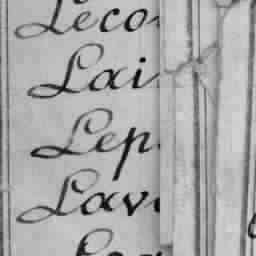 Leco
Lai
Lep
Lav